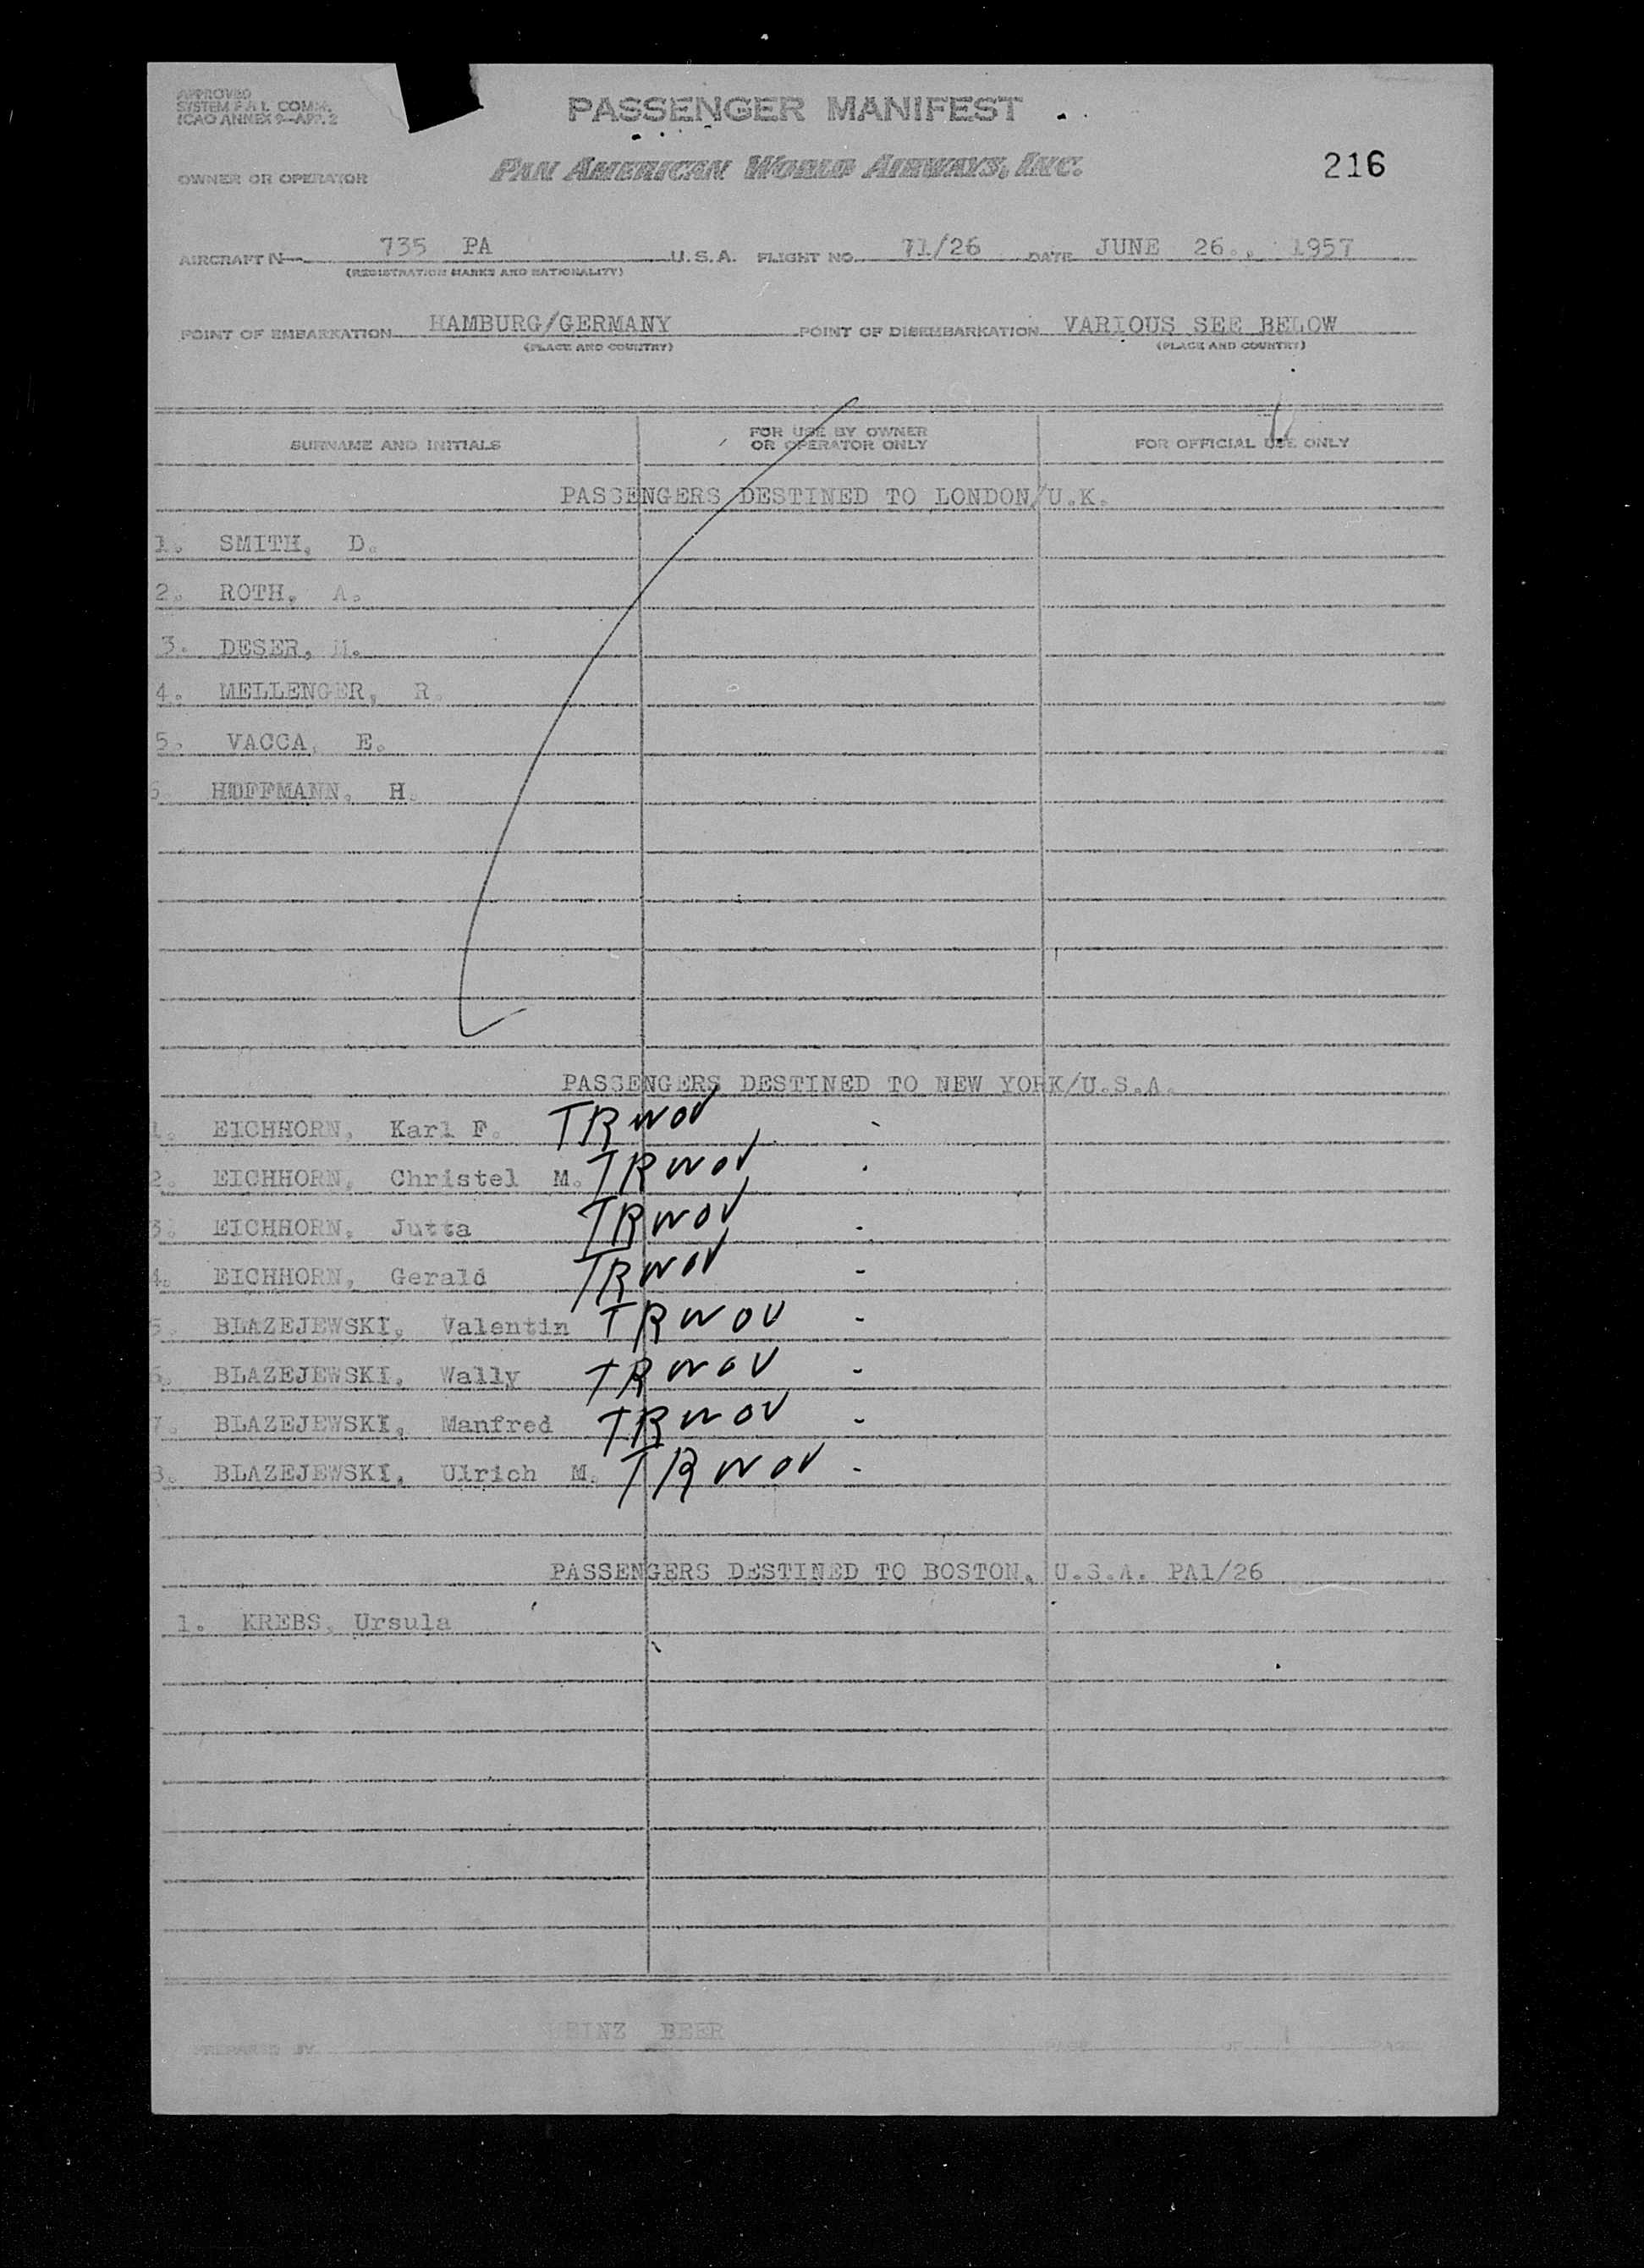 APPROVED
SYSTEM F A L COMM.
ICAO ANNEX 9—APP. 2
PASSENGER MANIFEST
OWNER OR OPERATOR
PAN AMERICAN WORLD AIRWAYS, INC.
216
AIRCRAFT N— 735 PA U.S.A. FLIGHT NO. 71/26 DATE JUNE 26., 1957
(REGISTRATION MARKS AND NATIONALITY)
POINT OF EMBARKATION HAMBURG/GERMANY POINT OF DISEMBARKATION VARIOUS SEE BELOW
(PLACE AND COUNTRY) (PLACE AND COUNTRY)
SURNAME AND INITIALS FOR USE BY OWNER OR OPERATOR ONLY FOR OFFICIAL USE ONLY
PASSENGERS DESTINED TO LONDON/U.K.
1. SMITH, D.
2. ROTH, A.
3. DESER, M.
4. MELLENGER, R.
5. VACCA, E.
6. HOFFMANN, H.
PASSENGERS DESTINED TO NEW YORK/U.S.A.
1. EICHHORN, Karl F. TRWOV
2. EICHHORN, Christel M. TRWOV
3. EICHHORN, Jutta TRWOV
4. EICHHORN, Gerald TRWOV
5. BLAZEJEWSKI, Valentin TRWOV -
6. BLAZEJEWSKI, Wally TRWOV -
7. BLAZEJEWSKI, Manfred TRWOV -
8. BLAZEJEWSKI, Ulrich M. TRWOV -
PASSENGERS DESTINED TO BOSTON, U.S.A. PA1/26
1. KREBS, Ursula
PREPARED BY HEINZ BEER PAGE OF 1 PAGES